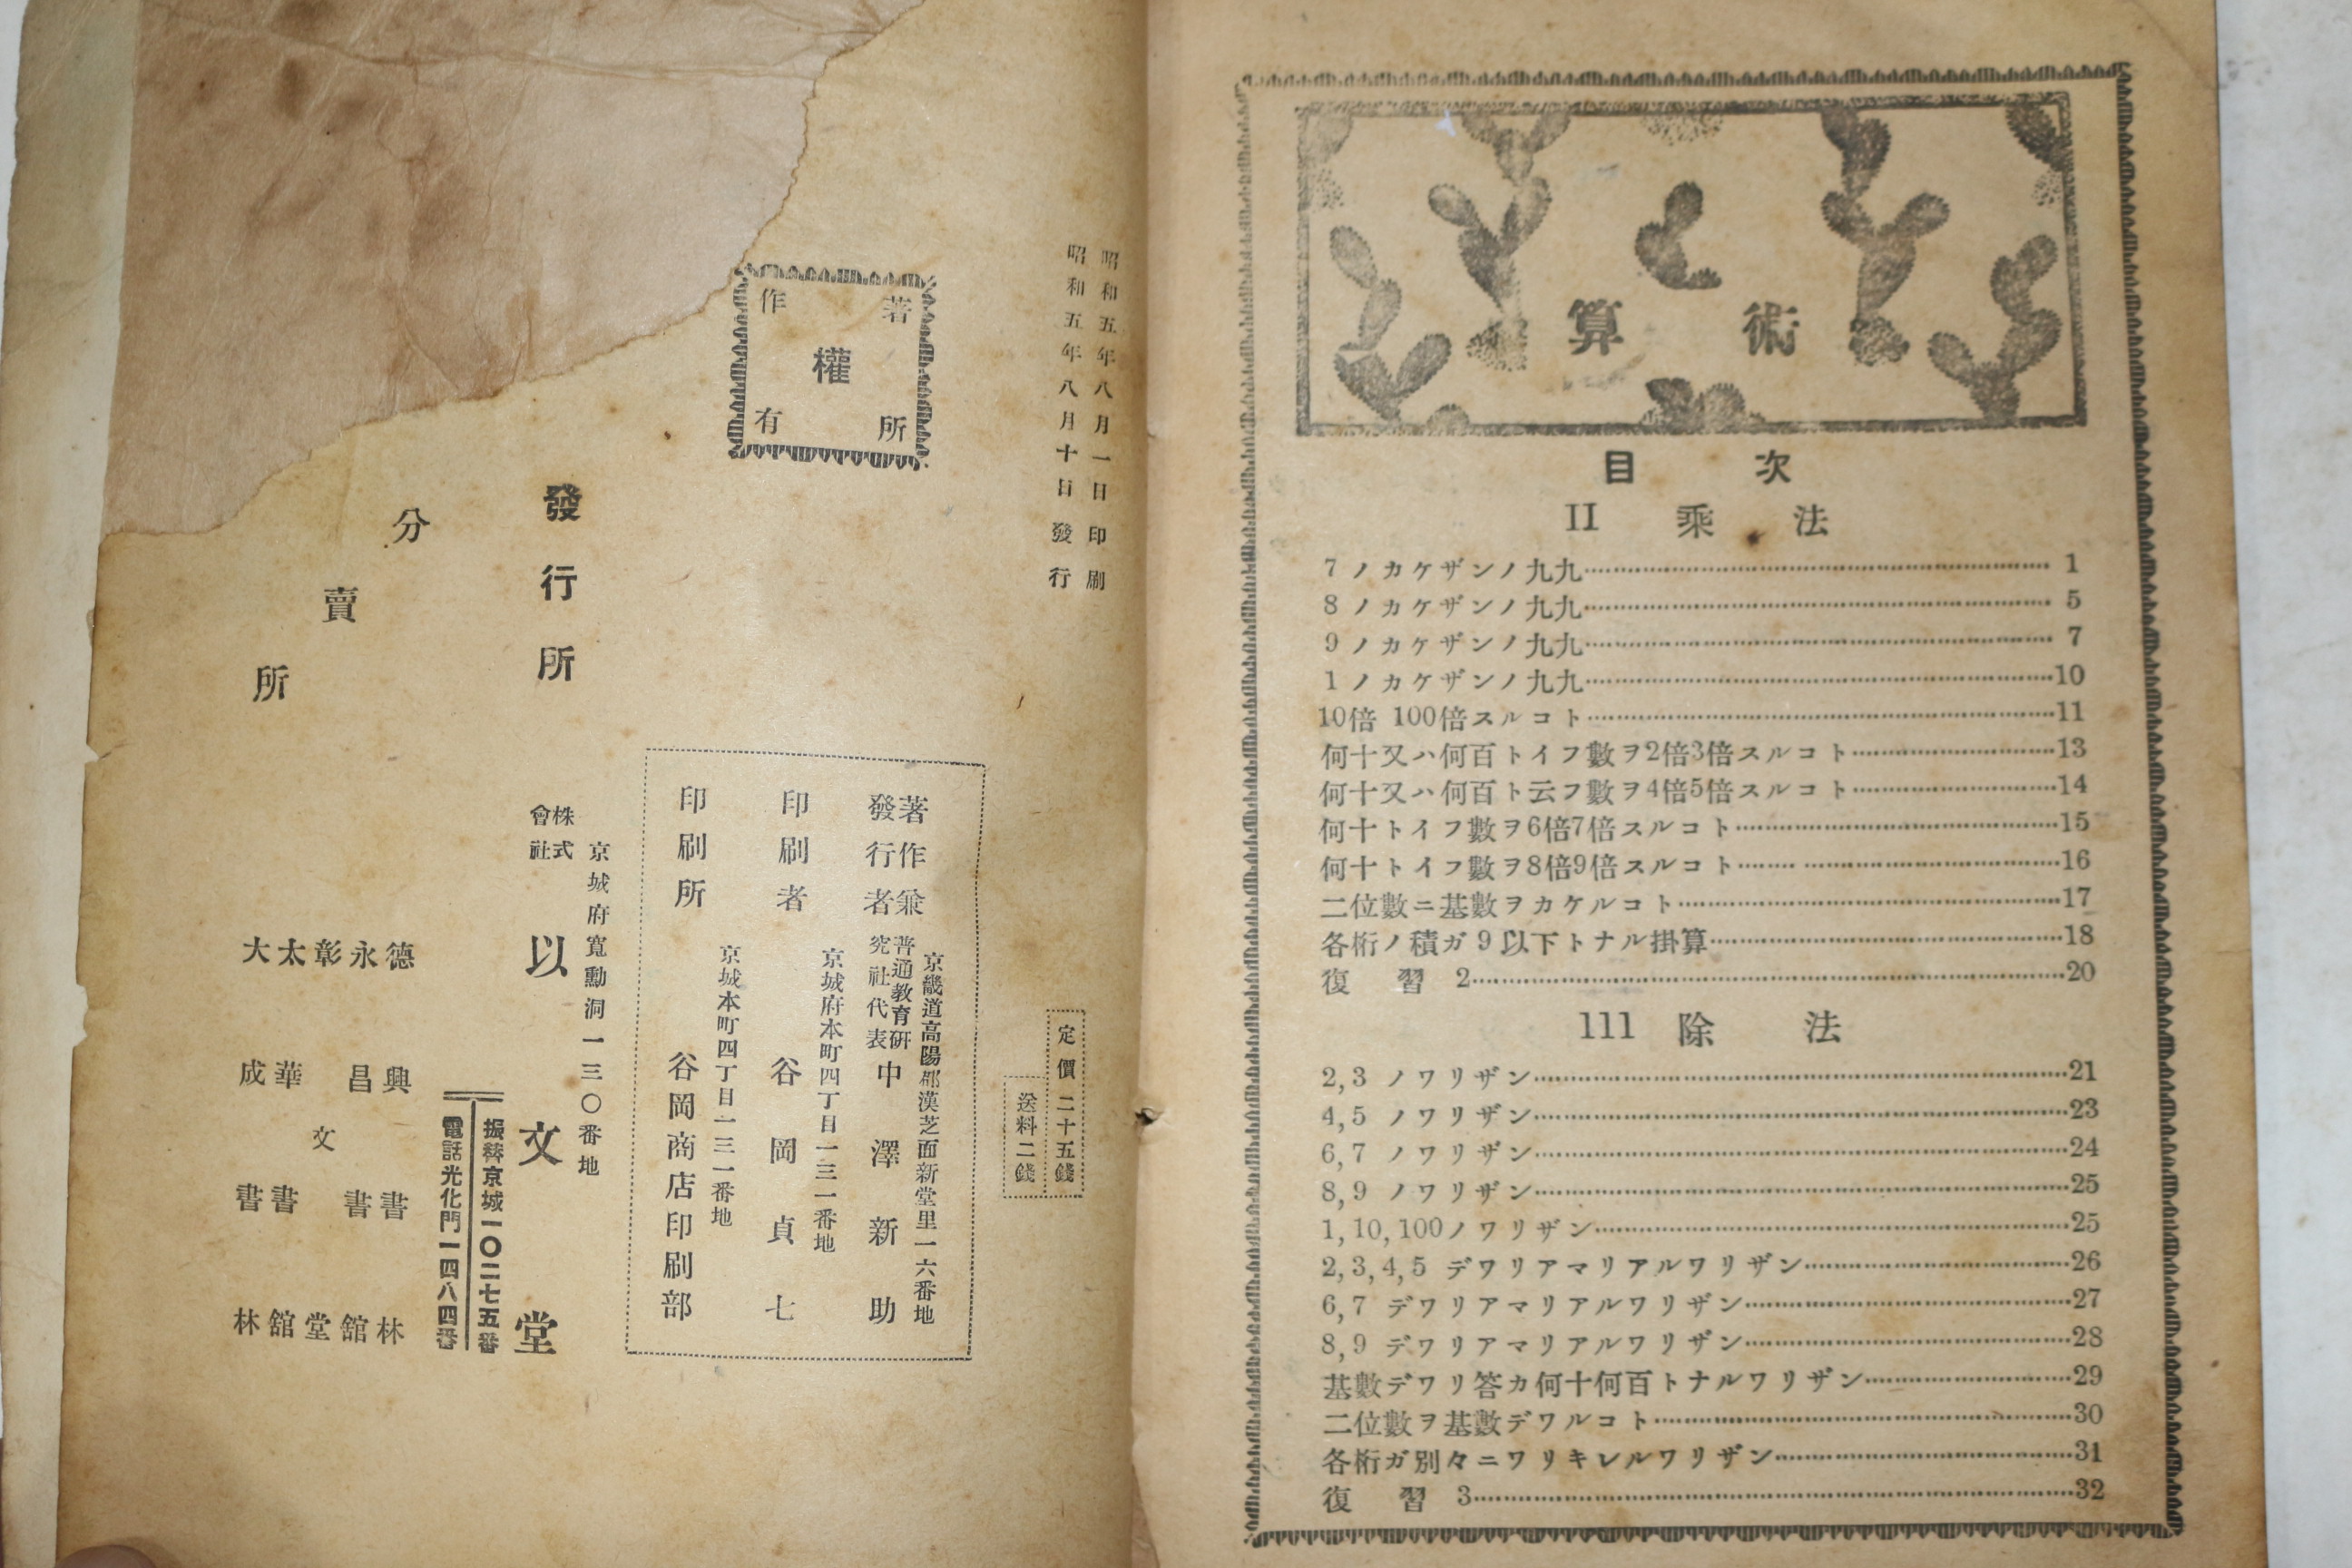 昭和五年八月一日印刷
昭和五年八月十日發行
著作權所有
定價二十五錢
送料二錢
著作兼發行者
京畿道高陽郡漢芝面新堂里一六番地
普通教育研究社代表
中澤新助
印刷者
京城府本町四丁目一三一番地
谷岡貞七
印刷所
京城本町四丁目一三一番地
谷岡商店印刷部
發行所
京城府寬勳洞一三〇番地
株式會社
以文堂
振替京城一〇二七五番
電話光化門一四八四番
分賣所
德興書林
永昌書舘
彰文堂
太華書舘
大成書林
算術
目次
II 乘法
7ノカケザンノ九九 1
8ノカケザンノ九九 5
9ノカケザンノ九九 7
1ノカケザンノ九九 10
10倍 100倍スルコト 11
何十又ハ何百トイフ數ヲ2倍3倍スルコト 13
何十又ハ何百ト云フ數ヲ4倍5倍スルコト 14
何十トイフ數ヲ6倍7倍スルコト 15
何十トイフ數ヲ8倍9倍スルコト 16
二位數ニ基數ヲカケルコト 17
各桁ノ積ガ9以下トナル掛算 18
復習 2 20
111 除法
2,3 ノワリザン 21
4,5 ノワリザン 23
6,7 ノワリザン 24
8,9 ノワリザン 25
1,10,100ノワリザン 25
2,3,4,5 デワリアマリアルワリザン 26
6,7 デワリアマリアルワリザン 27
8,9 デワリアマリアルワリザン 28
基數デワリ答カ何十何百トナルワリザン 29
二位數ヲ基數デワルコト 30
各桁ガ別々ニワリキレルワリザン 31
復習 3 32